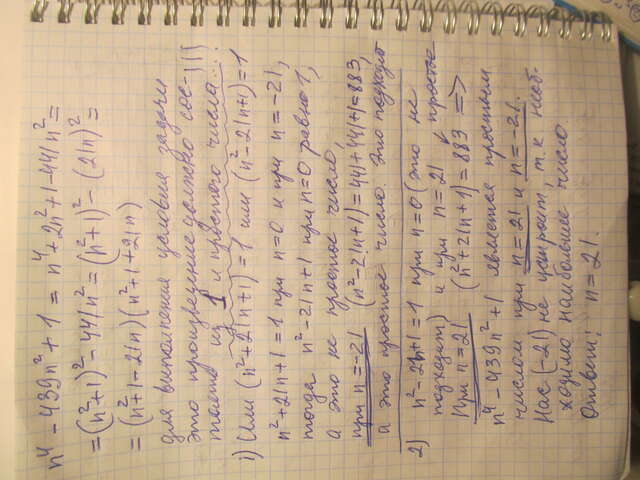 n⁴ - 439n² + 1 = n⁴ + 2n² + 1 - 441n² =
= (n² + 1)² - 441n² = (n² + 1)² - (21n)² =
= (n² + 1 - 21n)(n² + 1 + 21n)
для выполнения условия задачи
это произведение должно сос-
тоять из 1 и простого числа...
1) Или (n² + 21n + 1) = 1 или (n² - 21n + 1) = 1
n² + 21n + 1 = 1 при n = 0 и при n = -21,
тогда n² - 21n + 1 при n = 0 равно 1,
а это не простое число,
при n = -21 (n² - 21n + 1) = 441 + 441 + 1 = 883,
а это простое число. Это подходит
2) n² - 21n + 1 = 1 при n = 0 (это не
подходит) и при n = 21 простое
При n = 21 (n² + 21n + 1) = 883 =>
n⁴ - 439n² + 1 является простым
числом при n = 21 и n = -21.
Нас (-21) не устроит, т.к. необ-
ходимо наибольшее число.
Ответ: n = 21.